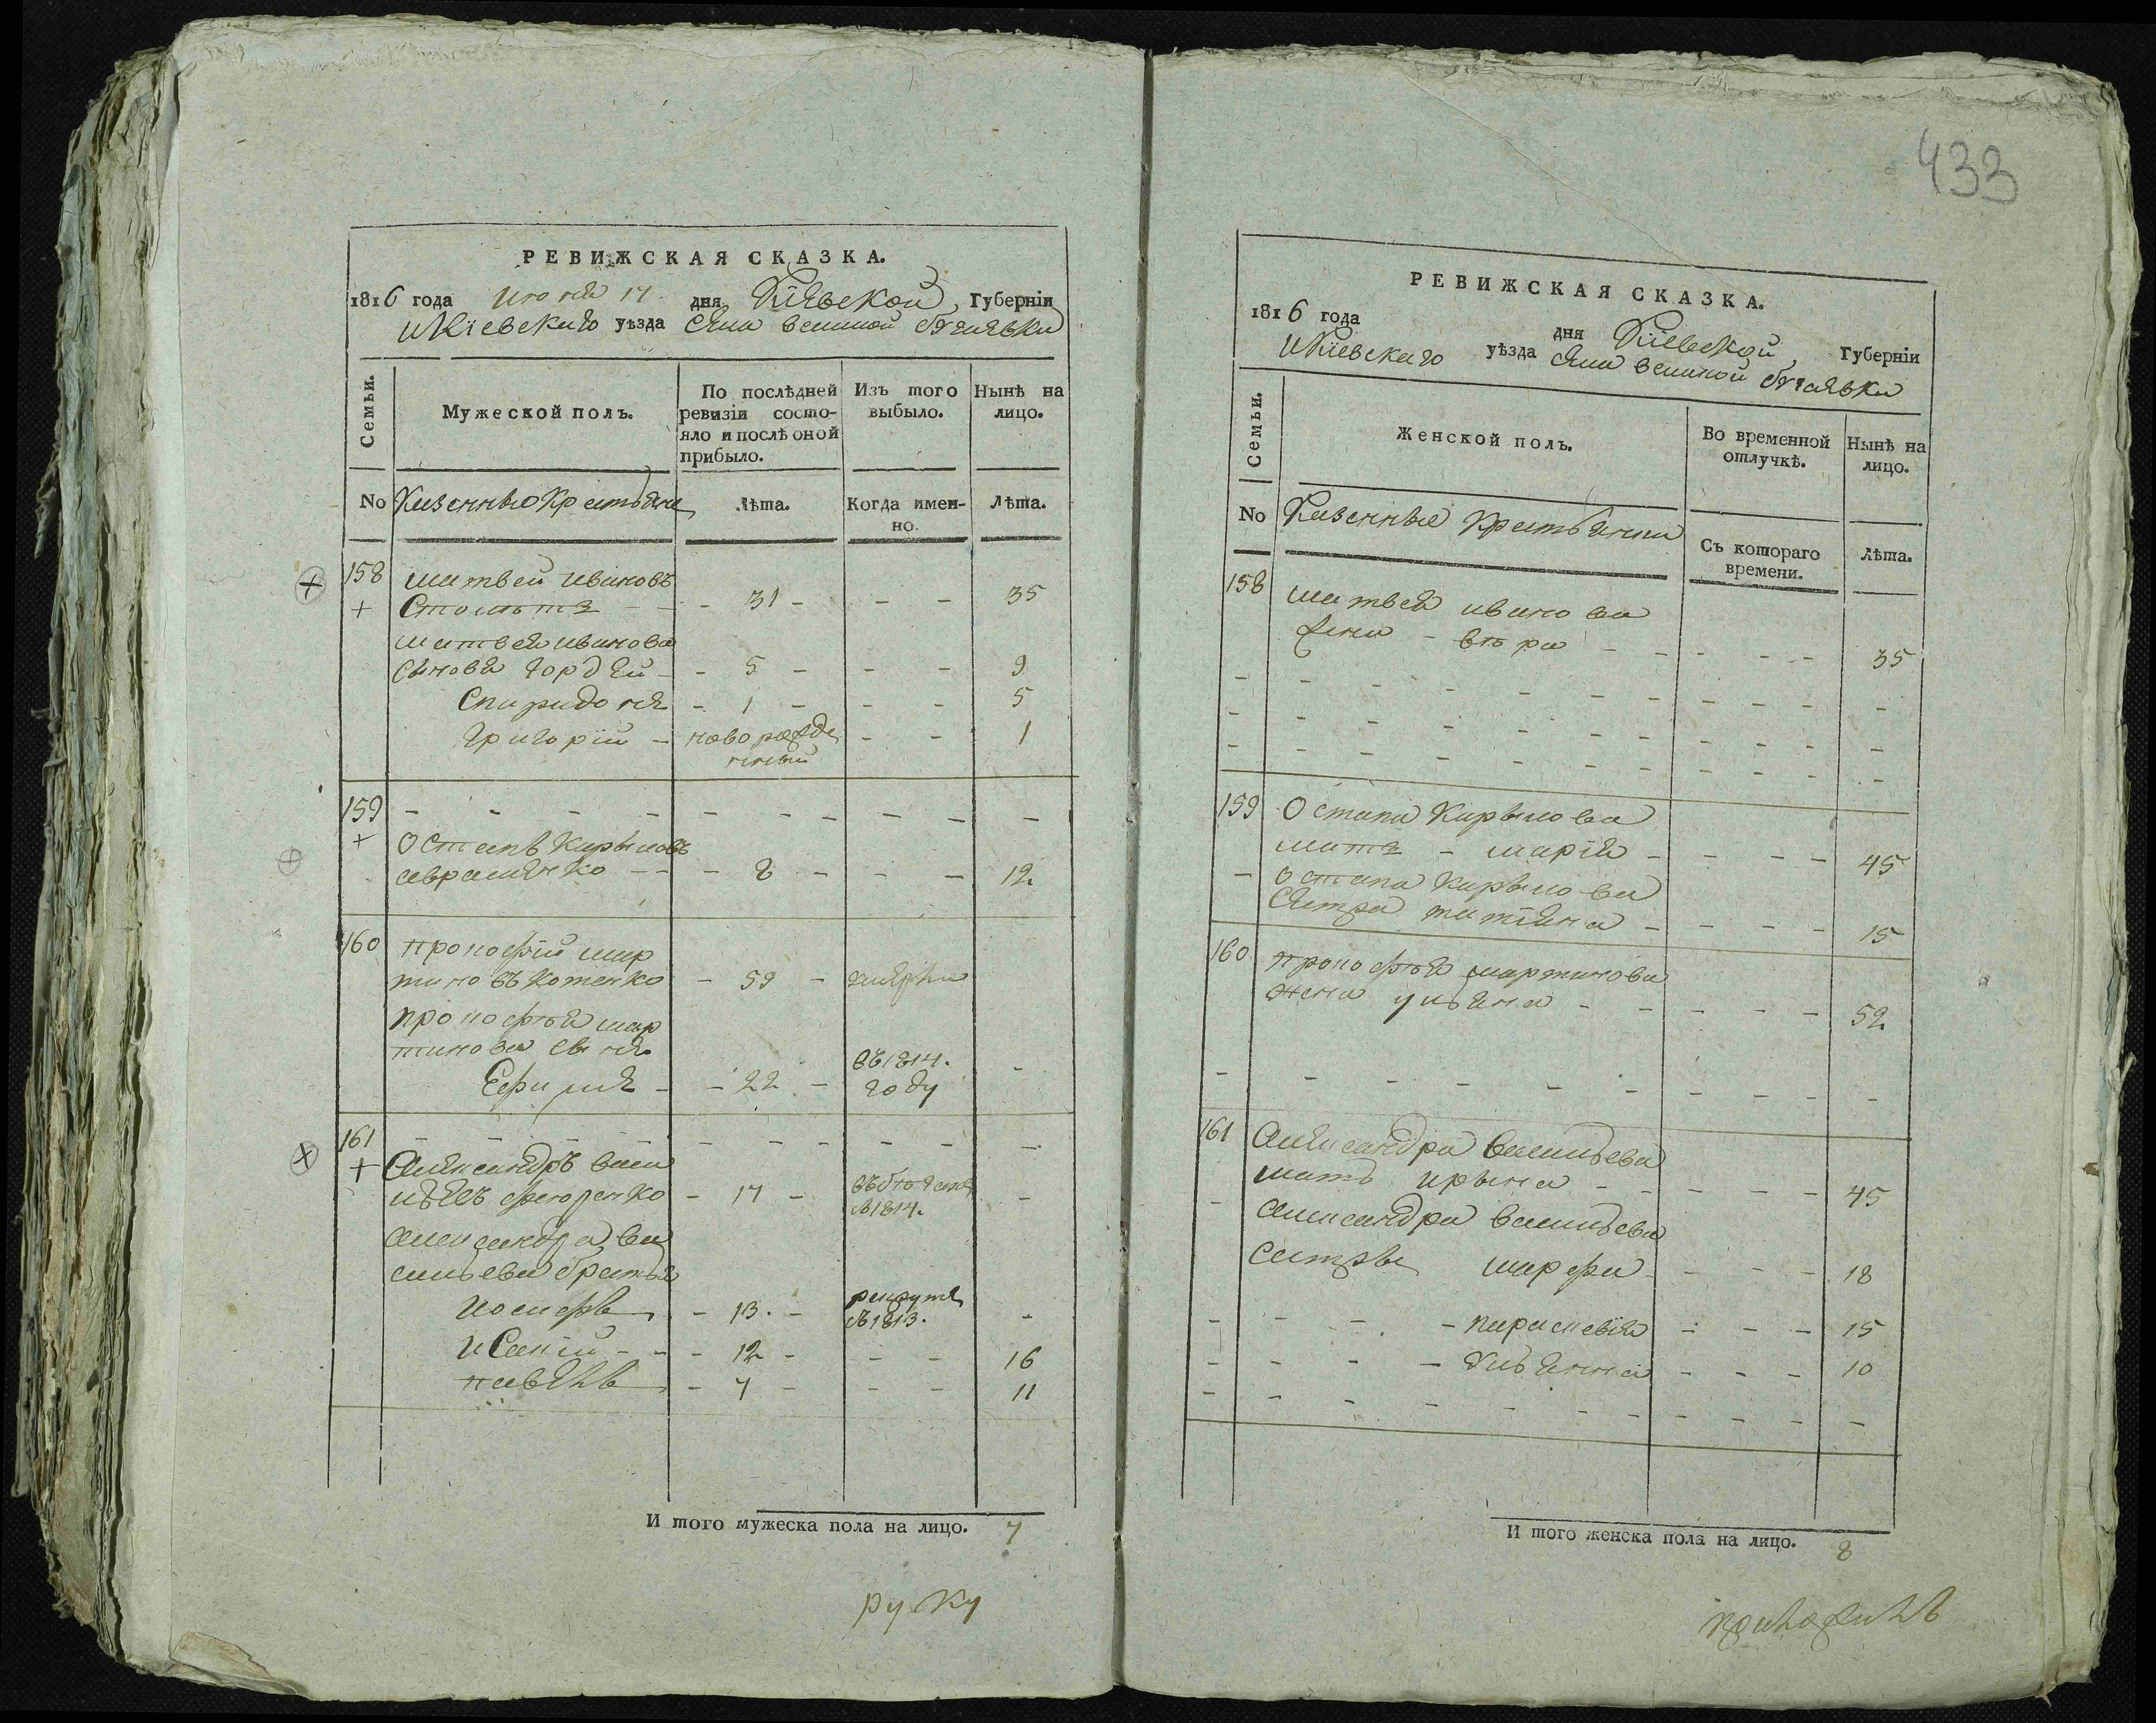 РЕВИЖСКАЯ СКАЗКА.
1816 года Июня 17. дня Кіевской Губерніи
и Кіевскаго уѣзда Села великой бугаевки
Семьи.
Мужеской полъ.
По послѣдней ревизіи состо-
яло и послѣ оной
прибыло.
Изъ того
выбыло.
Нынѣ на
лицо.
No Казенные Крестьяне
Лѣта.
Когда имен-
но.
Лѣта.
158 матвей ивановъ
+ - 31 - - - 35
матвея иванова
сыновя гордей - - 5 - - - 9
Спиридонъ - 1 - - - 5
Григорій - новорожде - - 1
нный
159 - - - - - - - - - -
+ Остапъ Кирыловъ
авраменко - - - 8 - - - 12
160 прокофій мар
тиновъ котенко - 59 - умерли
прокофѣя мар
тинова сынъ въ 1814.
Ефимъ - - 22 - году -
161 - - - - - - - - - -
+ Александръ васи
лѣевъ федоренко - 17 - въ бѣгахъ -
1814.
александра ва
сильева братья
иосифъ - 13. - рекрутъ -
1813.
Исакій - - - 12 - - - 16
павелъ - 7 - - - 11
И того мужеска пола на лицо. 7
руку
433
РЕВИЖСКАЯ СКАЗКА.
1816 года дня Кіевской, Губерніи
и Кіевскаго уѣзда Села великой бугаевки
Семьи.
Женской полъ.
Во временной
отлучкѣ.
Нынѣ на
лицо.
No Казенные крестьянки
Съ котораго
времени.
Лѣта.
158 матвея иванова
жена - вѣра - - - - - 35
159 Остапа Кирылова
мать - марія - - - - 45
- остапа Кирылова
сестра татіяна - - - - 15
160 прокофѣя мартинова
жена ульяна - - - - - 52
161 Александра васильева
мать ирына - - - - - 45
- александра васильева
сестры марфа - - - - 18
- - - - параскевія - - - 15
- - - - ульянна - - - 10
И того женска пола на лицо. 8
приложилъ